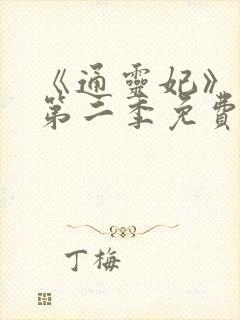 《通靈妃》
第二季免費
丁梅